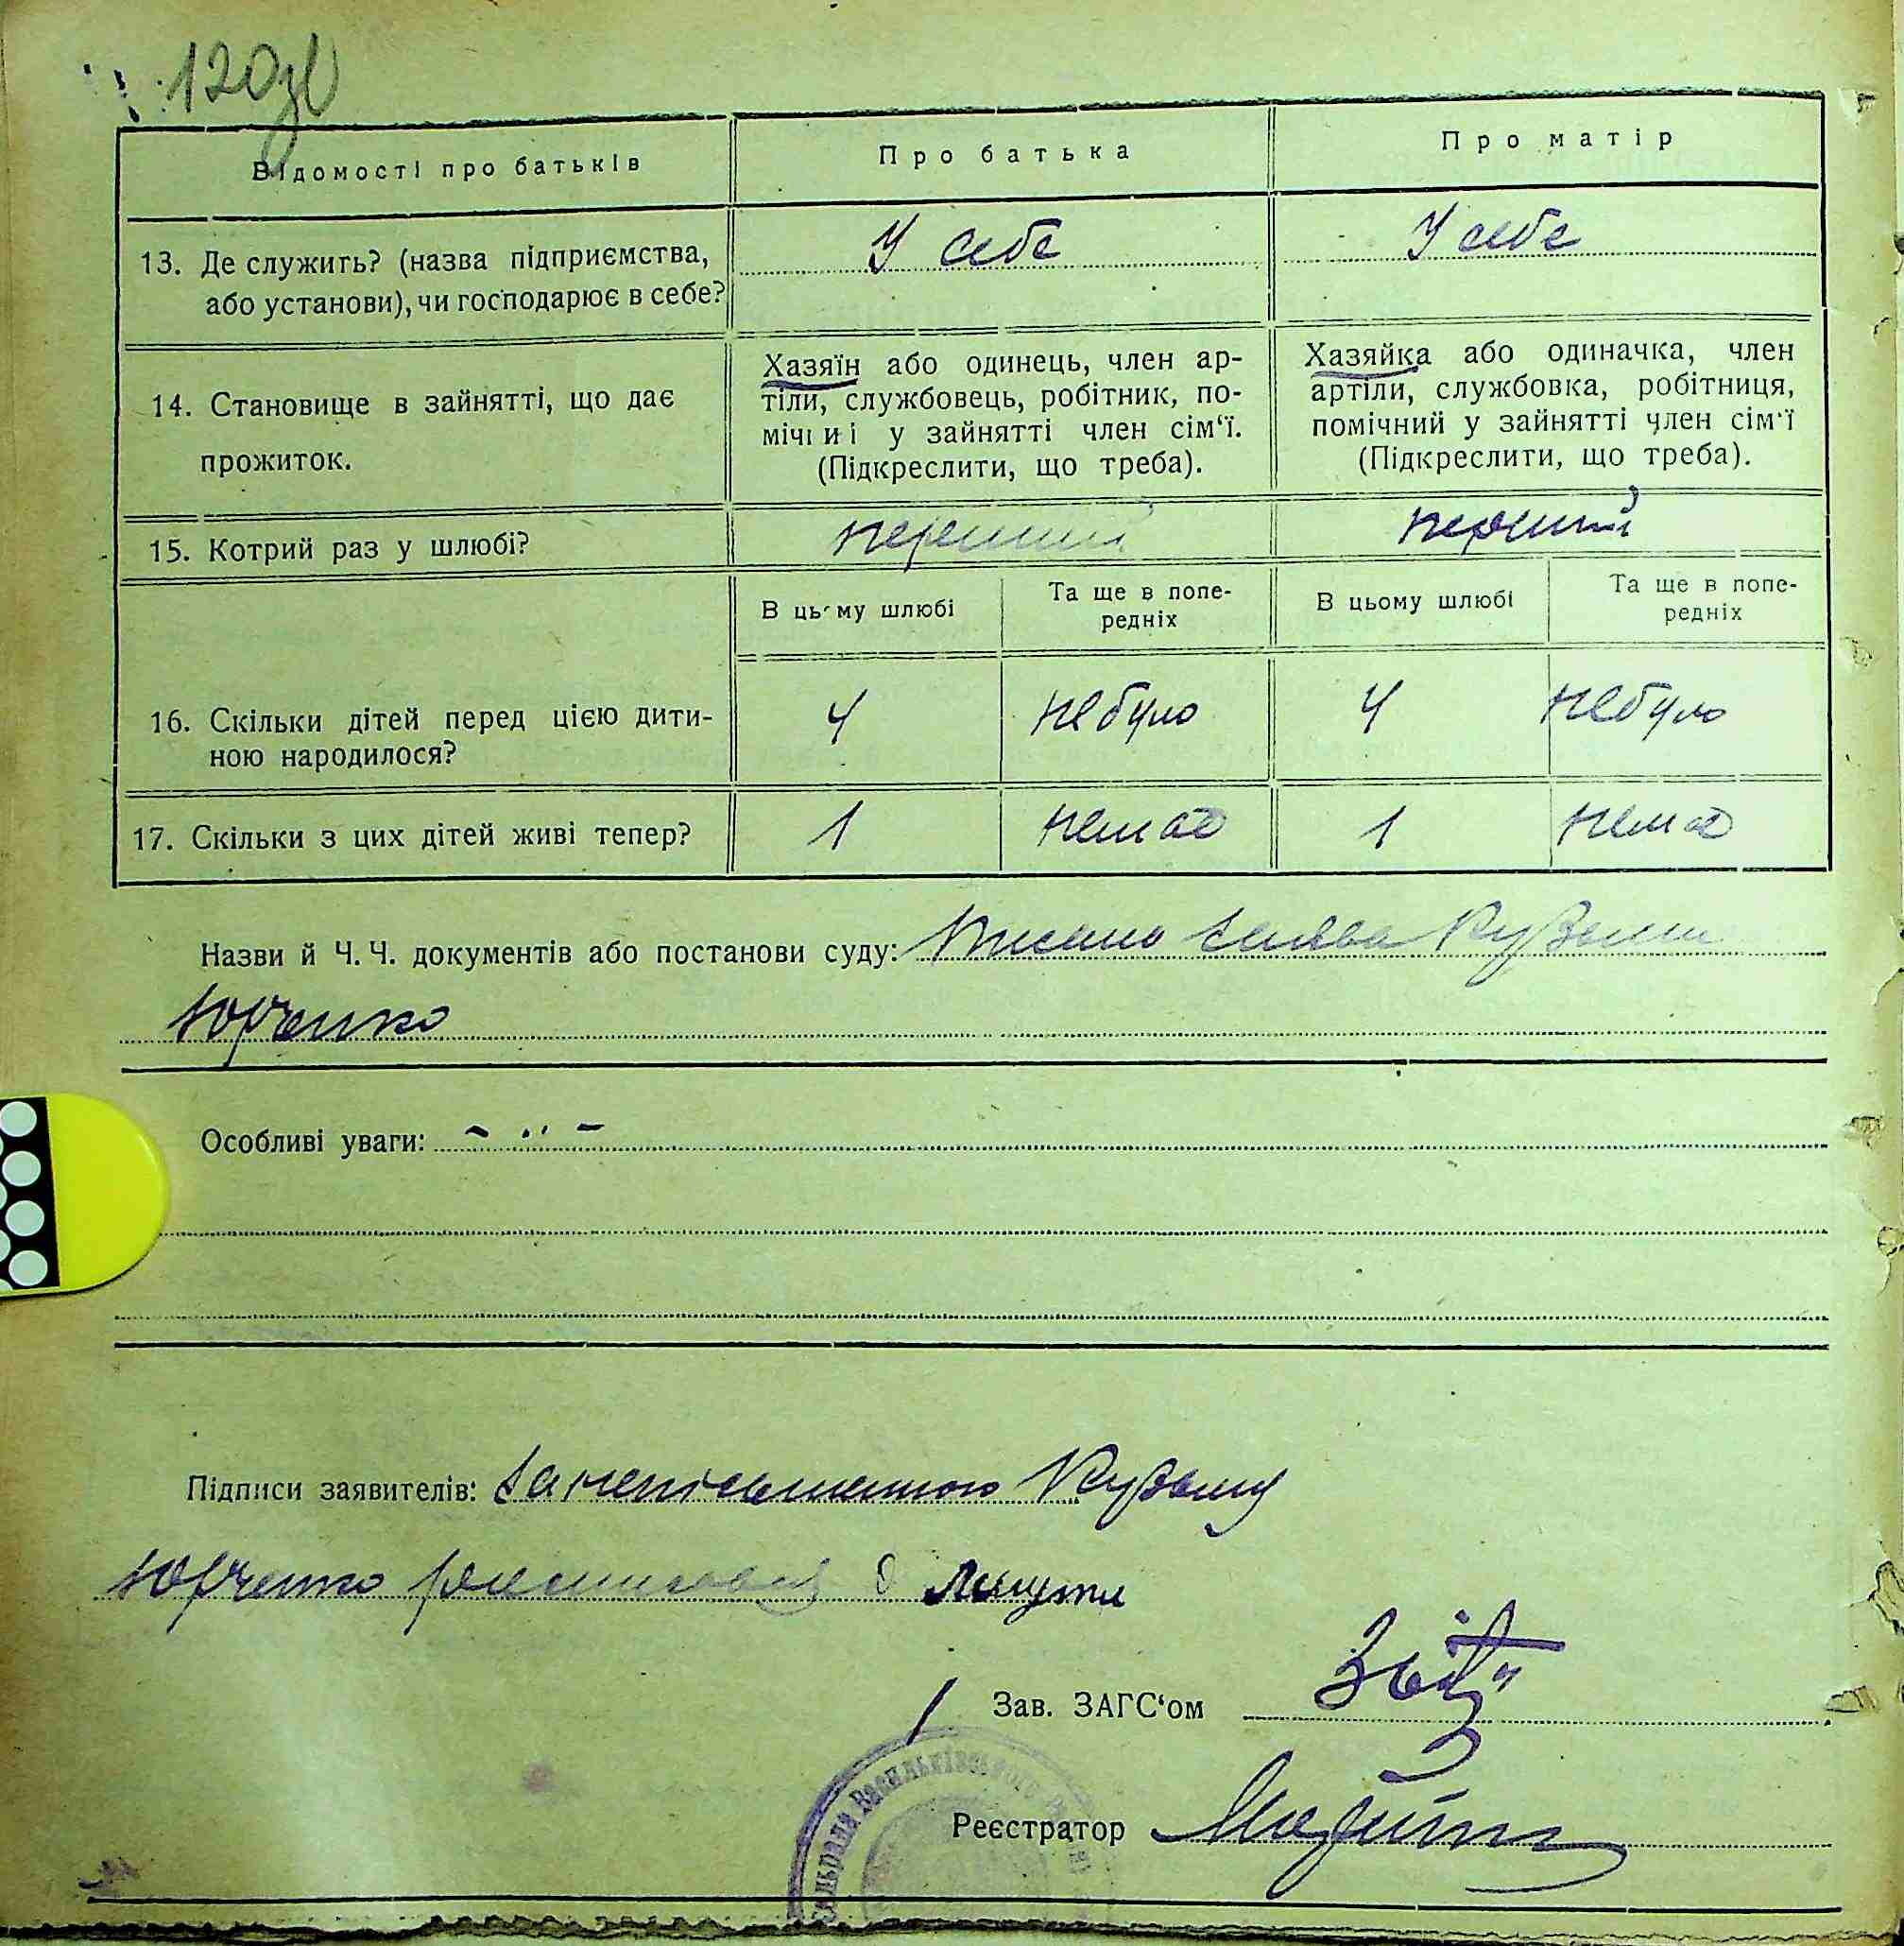 120зв
Відомості про батьків
Про батька
Про матір
13. Де служить? (назва підприємства,
або установи), чи господарює в себе?
У себе
У себе
14. Становище в зайнятті, що дає
прожиток.
Хазяїн або одинець, член ар-
тіли, службовець, робітник, по-
мічний у зайнятті член сім‘ї.
(Підкреслити, що треба).
Хазяйка або одиначка, член
артіли, службовка, робітниця,
помічний у зайнятті член сім‘ї
(Підкреслити, що треба).
15. Котрий раз у шлюбі?
перший
перший
В цьому шлюбі
Та ще в попе-
редніх
В цьому шлюбі
Та ще в попе-
редніх
16. Скільки дітей перед цією дити-
ною народилося?
4
небуло
4
небуло
17. Скільки з цих дітей живі тепер?
1
немає
1
немає
Назви й Ч. Ч. документів або постанови суду: заява Кузьми
Юрченко
Особливі уваги:
Підписи заявителів: за неписьменного Кузьму
Юрченко розписався
Зав. ЗАГС‘ом
Реєстратор
Сільрада Васильківського